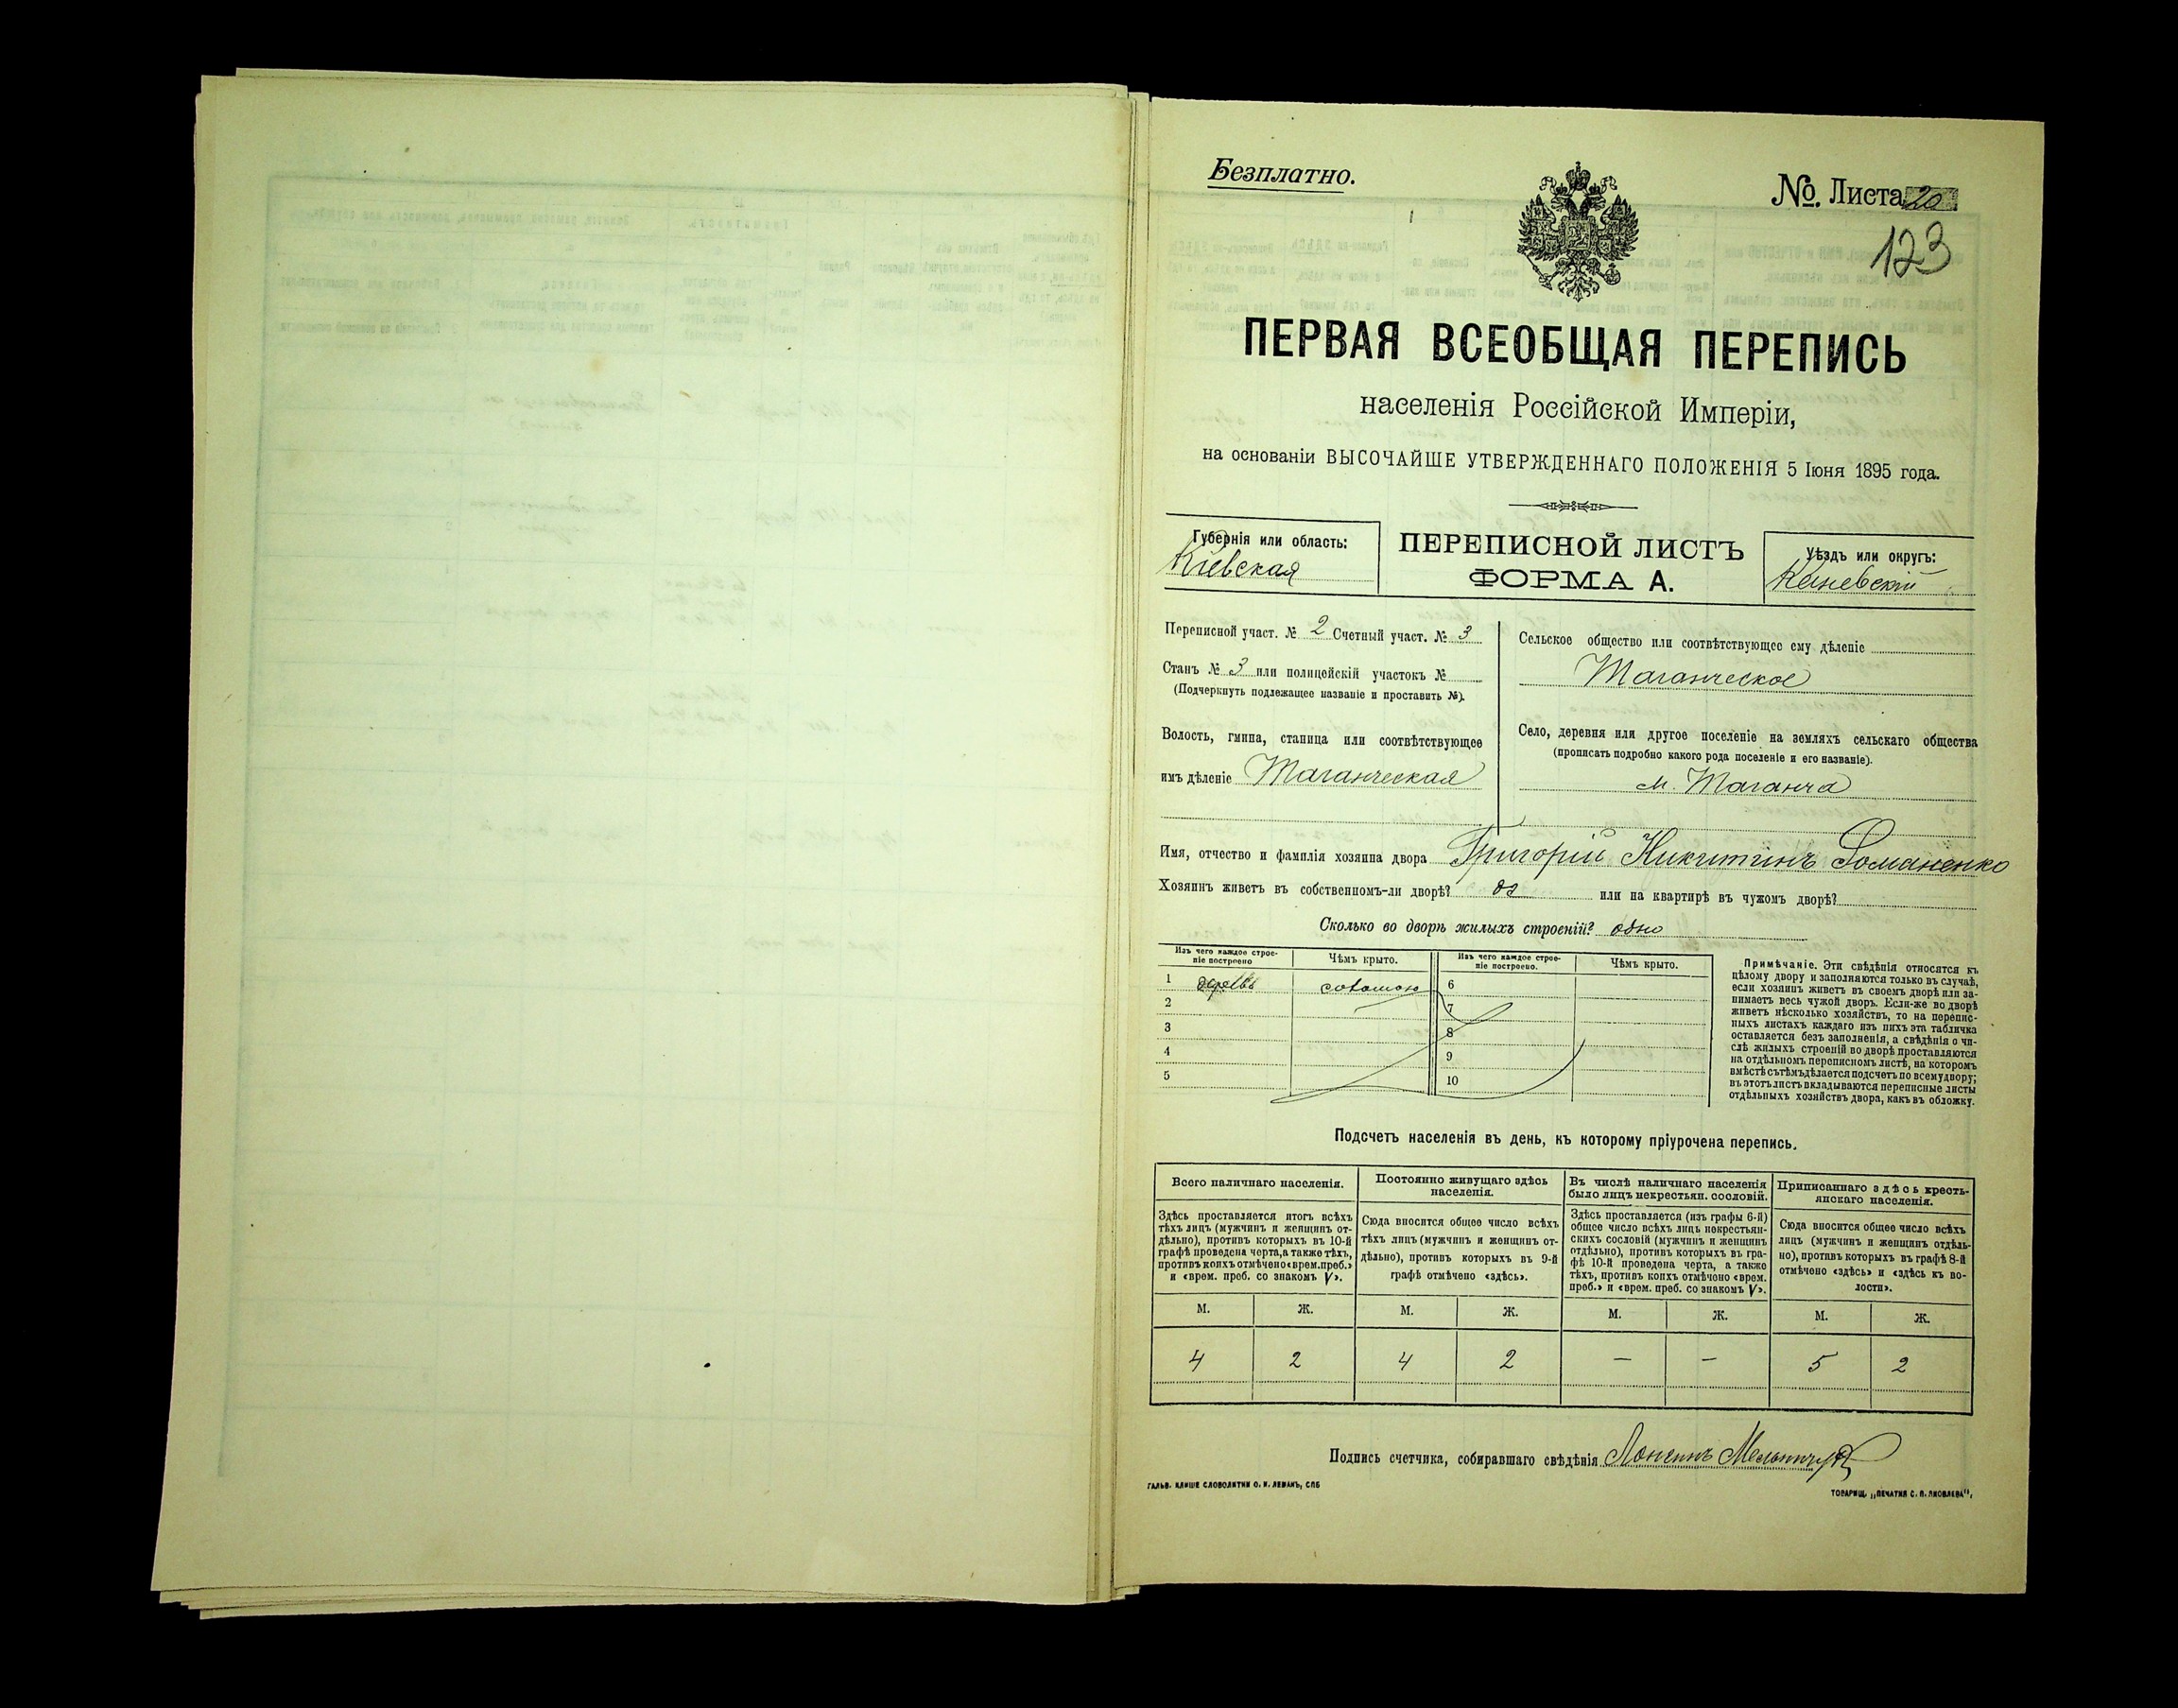 Безплатно.
№. Листа 20
123
ПЕРВАЯ ВСЕОБЩАЯ ПЕРЕПИСЬ
населенія Россійской Имперіи,
на основаніи ВЫСОЧАЙШЕ УТВЕРЖДЕННАГО ПОЛОЖЕНІЯ 5 Іюня 1895 года.
Губернія или область:
Кіевская
ПЕРЕПИСНОЙ ЛИСТЪ
ФОРМА А.
Уѣздъ или округъ:
Каневскій
Переписной участ. № 2 Счетный участ. № 3
Станъ № 3 или полицейскій участокъ №
(Подчеркнуть подлежащее названіе и проставить №).
Волость, гмина, станица или соотвѣтствующее
имъ дѣленіе Таганческая
Сельское общество или соотвѣтствующее ему дѣленіе
Таганческое
Село, деревня или другое поселеніе на земляхъ сельскаго общества
(прописать подробно какого рода поселеніе и его названіе).
м. Таганча
Имя, отчество и фамилія хозяина двора Григорій Никитинъ Романенко
Хозяинъ живетъ въ собственномъ-ли дворѣ? да или на квартирѣ въ чужомъ дворѣ?
Сколько во дворѣ жилыхъ строеній? одно
Изъ чего каждое строеніе построено
Чѣмъ крыто.
Изъ чего каждое строеніе построено.
Чѣмъ крыто.
1 соломою 6
2 7
3 8
4 9
5 10
Примѣчаніе. Эти свѣдѣнія относятся къ
цѣлому двору и заполняются только въ случаѣ,
если хозяинъ живетъ въ своемъ дворѣ или за-
нимаетъ весь чужой дворъ. Если-же во дворѣ
живетъ нѣсколько хозяйствъ, то на перепис-
ныхъ листахъ каждаго изъ нихъ эта табличка
оставляется безъ заполненія, а свѣдѣнія о чи-
слѣ жилыхъ строеній во дворѣ проставляются
на отдѣльномъ переписномъ листѣ, на которомъ
вмѣстѣ съ тѣмъ дѣлается подсчетъ по всему двору;
въ этотъ листъ вкладываются переписные листы
отдѣльныхъ хозяйствъ двора, какъ въ обложку.
Подсчетъ населенія въ день, къ которому пріурочена перепись.
Всего наличнаго населенія.
Здѣсь проставляется итогъ всѣхъ
тѣхъ лицъ (мужчинъ и женщинъ от-
дѣльно), противъ которыхъ въ 10-й
графѣ проведена черта, а также тѣхъ,
противъ коихъ отмѣчено «врем. преб.»
и «врем. преб. со знакомъ V».
Постоянно живущаго здѣсь
населенія.
Сюда вносится общее число всѣхъ
тѣхъ лицъ (мужчинъ и женщинъ от-
дѣльно), противъ которыхъ въ 9-й
графѣ отмѣчено «здѣсь».
Въ числѣ наличнаго населенія
было лицъ некрестьян. сословій.
Здѣсь проставляется (изъ графы 6-й)
общее число всѣхъ лицъ некрестьян-
скихъ сословій (мужчинъ и женщинъ
отдѣльно), противъ которыхъ въ гра-
фѣ 10-й проведена черта, а также
тѣхъ, противъ коихъ отмѣчено «врем.
преб.» и «врем. преб. со знакомъ V».
Приписаннаго здѣсь кресть-
янскаго населенія.
Сюда вносится общее число всѣхъ
лицъ (мужчинъ и женщинъ отдѣль-
но), противъ которыхъ въ графѣ 8-й
отмѣчено «здѣсь» и «здѣсь къ во-
лости».
М. Ж. М. Ж. М. Ж. М. Ж.
4 2 4 2 — — 5 2
Подпись счетчика, собиравшаго свѣдѣнія
ГАЛЬВ. КЛИШЕ СЛОВОЛИТНИ О. И. ЛЕМАНЪ, СПБ
ТОВАРИЩ. „ПЕЧАТНЯ С. П. ЯКОВЛЕВА",